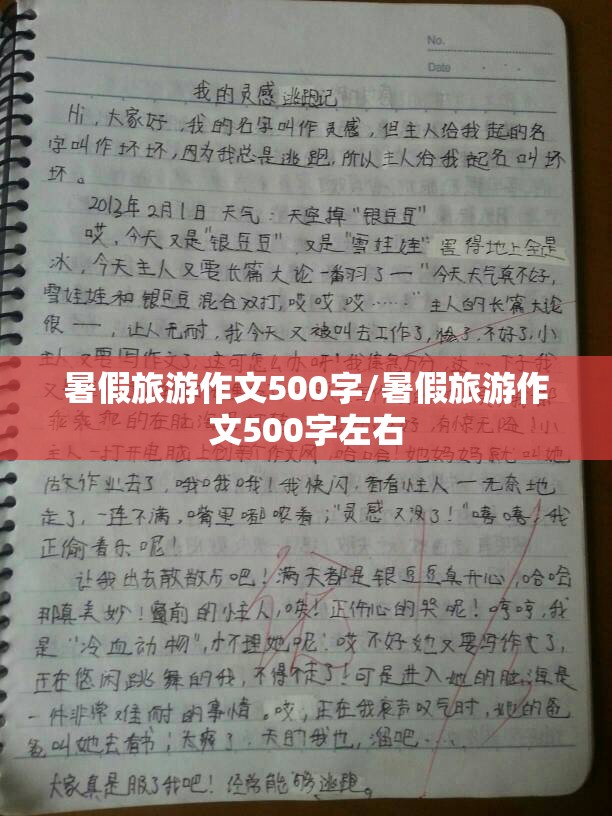 No.
Date
我的灵感逃跑记
Hi,大家好,我的名字叫作灵感,但主人给我起的名
字叫作坏坏,因为我总是逃跑,所以主人给我起名叫坏
坏。
2013年2月1日 天气:天空掉“银豆豆”
哎,今天又是“银豆豆”,又是“雪娃娃”害得地上全是
冰,今天主人又要长篇大论一番羽了一“今天天气真不好,
雪娃娃和银豆豆混合双打,哎哎哎……”主人的长篇大论
很一,让人无耐,我今天又被叫去工作了,惨了,不好了,小
暑假旅游作文500字/暑假旅游作
文500字左右
主人一打开电脑上创新作文网,哈哈!她妈妈就叫她
做作业去了,哦哦哦!我快闪,看看主人一无奈地
走了,一连不满,嘴里嘟哝着;“灵感又没了!”嘻嘻,我
正偷着乐呢!
让我出去散散步吧!满天都是银豆豆真开心,哈哈
那真美妙!窗前的主人,唉!正伤心的哭呢!哼哼,我
是“冷血动物”,才不理她呢!哎不好她又要写作文了,
正在悠闲跳舞的我,不得不走了!可是进入她的脑海是
一件非常难耐的事情。哎,正在我哀声叹气时,她的爸
爸叫她去看书;太棒了,天助我也,溜吧……
大家真是服了我吧!经常能够逃跑。